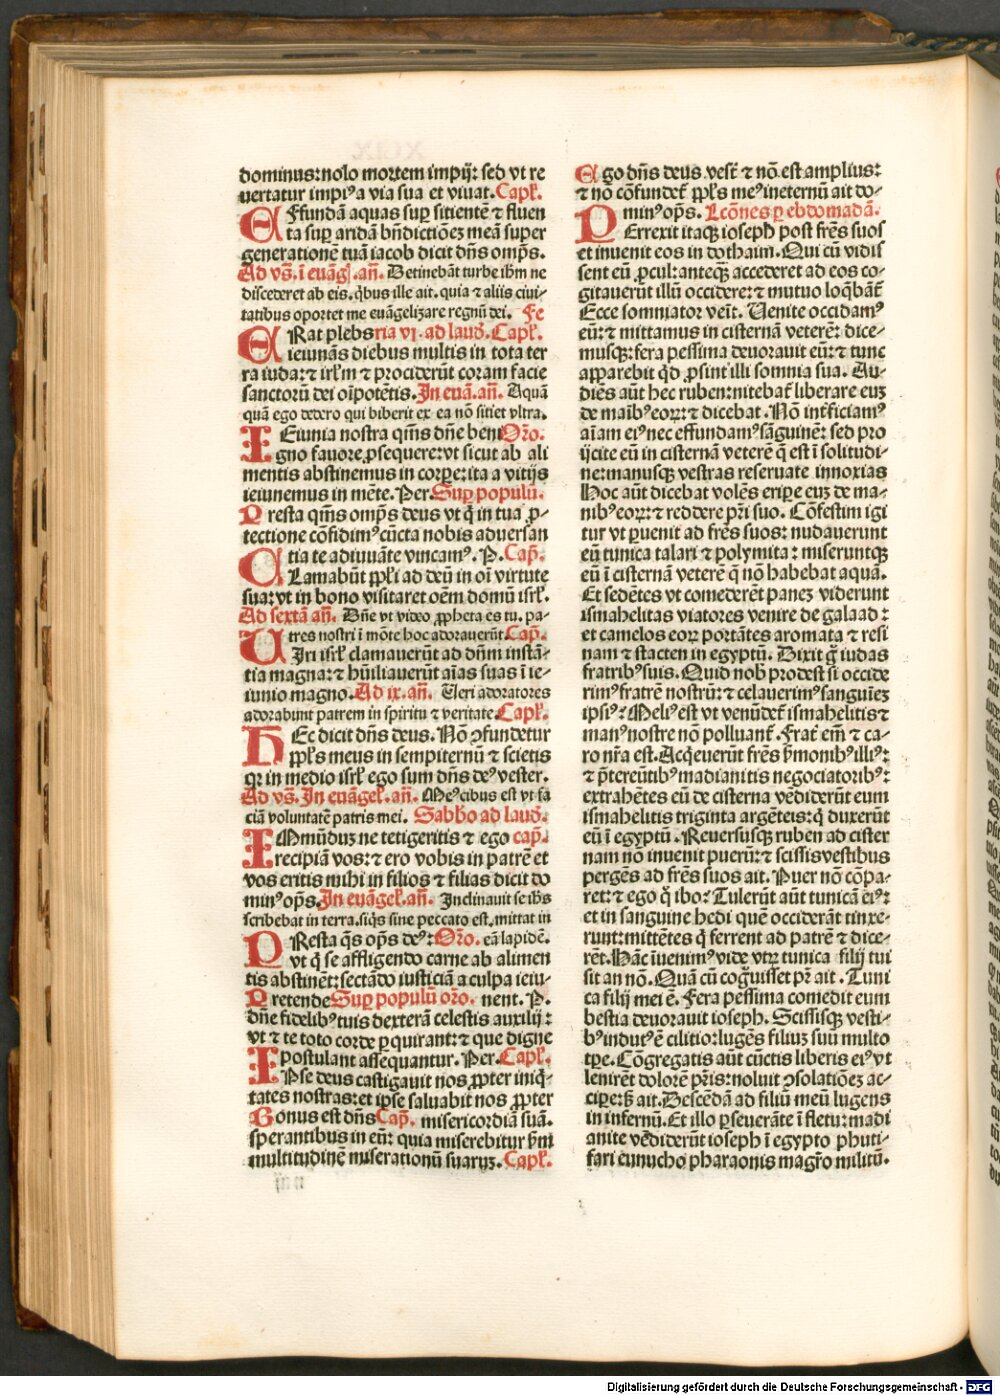 dominus: nolo mortem impij: sed vt re
uertatur impiꝰ a via sua et viuat. Capł.
Effundā aquas suꝑ sitientē ⁊ fluen
ta suꝑ aridā bn̄dictiōeꝫ meā super
generationē tuā iacob dicit dn̄s omp̄s.
Ad vs̄. ī euāgł. an̄. Detinebāt turbe ih̄m ne
discederet ab eis. q̇bus ille ait. quia ⁊ aliis ciui-
tatibus oportet me euāgelizare regnū dei. Fe
ERat plebs ria vj. ad laud̄. Capł.
ieiunās diebus multis in tota ter
ra iuda: ⁊ irłm ⁊ prociderūt coram facie
sanctorū dei oīpotētis. In euā. an̄. Aquā
quā ego dedero qui biberit ex ea nō sitiet vltra.
IEiunia nostra qm̄s dn̄e beni Or̄o.
gno fauore ꝓsequere: vt sicut ab ali
mentis abstinemus in corꝑe: ita a vitijs
ieiunemus in mēte. Per. Suꝑ populū.
Presta qm̄s omp̄s deus vt q̇ in tua ꝓ-
tectione cōfidimꝰ cūcta nobis aduersan
tia te adiuuāte vincamꝰ. P. Cap̄.
CLamabūt ꝓp̄łi ad deū in oī virtute
sua: vt in bono visitaret oēm domū isrł.
Ad sextā an̄. Dn̄e vt video ꝓpheta es tu. pa-
tres nostri ī mōte hoc adorauerūt. Cap̄.
UIri isrł clamauerūt ad dn̄m instā-
tia magna: ⁊ hūiliauerūt aīas suas ī ie-
iunio magno. Ad ix. an̄. Ueri adoratores
adorabunt patrem in spiritu ⁊ veritate. Capł.
HEc dicit dn̄s deus. Nō ꝯfundetur
ꝓpł̄s meus in sempiternū ⁊ scietis
qꝛ in medio isrł ego sum dn̄s deꝰ vester.
Ad vs̄. In euāgeł. an̄. Meꝰ cibus est vt fa
ciā voluntatē patris mei. Sabb̄o ad laud̄.
IMmūduꝫ ne tetigeritis ⁊ ego cap̄.
recipiā vos: ⁊ ero vobis in patrē et
vos eritis mihi in filios ⁊ filias dicit do
minꝰ op̄s. In euāgeł. an̄. Inclinauit se ih̄s
scribebat in terra. siq̇s sine peccato est. mittat in
PResta q̄s op̄s deꝰ: Or̄o. eā lapidē.
vt q̇ se affligendo carne ab alimen
tis abstinēt: sectādo iusticiā a culpa ieiu-
Pretende Suꝑ populū or̄o. nent. P.
dn̄e fidelibꝰ tuis dexterā celestis auxilij:
vt ⁊ te toto corde ꝑquirant: ⁊ que digne
postulant assequantur. Per. Capł.
IPse deus castigauit nos ꝓpter iniq̇-
tates nostras: et ipse saluabit nos ꝓpter
Bonus est dn̄s Cap̄. misericordiā suā.
sperantibus in eū: quia miserebitur ẜm
multitudinē miserationū suarꝝ. Capł.
Ego dn̄s deus vesť ⁊ nō est amplius:
⁊ nō cōfundeť ꝓpł̄s meꝰ in eternū ait do-
minꝰ op̄s. Lcōnes ꝑ ebdomadā.
PErrexit itaqꝫ ioseph post fr̄es suos
et inuenit eos in dothaim. Qui cū vidis
sent eū ꝓcul: anteqꝫ̄ accederet ad eos co-
gitauerūt illū occidere: ⁊ mutuo loq̄bāť
Ecce somniator venīt. Uenite occidamꝰ
eū: ⁊ mittamus in cisternā veterē: dice-
musqꝫ: fera pessima deuorauit eū: ⁊ tunc
apparebit qd̄ ꝓsint illi somnia sua. Au-
diēs aūt hec ruben: nitebať liberare euꝫ
de maībꝰ eoꝝ: ⁊ dicebat. Nō inťficiamꝰ
aīam eiꝰ nec effundamꝰ sāguinē: sed pro
ijcite eū in cisternā veterē q̄ est ī solitudi-
ne: manusqꝫ vestras reseruate innoxias
Hoc aūt dicebat volēs eriꝑe euꝫ de ma-
nibꝰ eoꝝ: ⁊ reddere pr̄i suo. Cōfestim igi
tur vt ꝑuenit ad fr̄es suos: nudauerunt
eū tunica talari ⁊ polymita: miseruntqꝫ
eū ī cisternā veterē q̄ nō habebat aquā.
Et sedētes vt comederēt paneꝫ viderunt
ismahelitas viatores venire de galaad:
et camelos eoꝝ portātes aromata ⁊ resi
nam ⁊ stacten in egyptū. Dixit g̊ iudas
fratribꝰ suis. Quid nob̄ prodest si occide
rimꝰ fratrē nostrū: ⁊ celauerimꝰ sanguineꝫ
ipsiꝰ? Meliꝰ est vt venūdeť ismahelitis ⁊
manꝰ nostre nō polluanť. Fraťr em̄ ⁊ ca-
ro nr̄a est. Acq̇euerūt fr̄es ẜmonibꝰ illiꝰ:
⁊ p̄tereūtibꝰ madianitis negociatoribꝰ:
extrahētes eū de cisterna vēdiderūt eum
ismahelitis triginta argēteis: q̇ duxerūt
eū ī egyptū. Reuersusqꝫ ruben ad cister
nam nō inuenit puerū: ⁊ scissis vestibus
pergēs ad fr̄es suos ait. Puer nō cōpa-
ret: ⁊ ego q̊ ibo? Tulerūt aūt tunicā eiꝰ:
et in sanguine hedi quē occiderāt tinxe-
runt: mittētes q̇ ferrent ad patrē ⁊ dice-
rēt. Hāc īuenimꝰ vide vtꝝ tunica filij tui
sit an nō. Quā cū cog̊uisset pr̄ ait. Tuni
ca filij mei ē. Fera pessima comedit eum
bestia deuorauit ioseph. Scissisqꝫ vesti-
bꝰ indutꝰ ē cilitio: lugēs filiuꝫ suū multo
tꝑe. Cōgregatis aūt cūctis liberis eiꝰ vt
lenirēt dolorē pr̄is: noluit ꝯsolatiōeꝫ ac-
ciꝑe: sꝫ ait. Descēdā ad filiū meū lugens
in infernū. Et illo ꝑseuerāte ī fletu: madi
anite vēdiderūt ioseph ī egypto phuti-
fari eunucho pharaonis magr̄o militū.
Digitalisierung gefördert durch die Deutsche Forschungsgemeinschaft - DFG